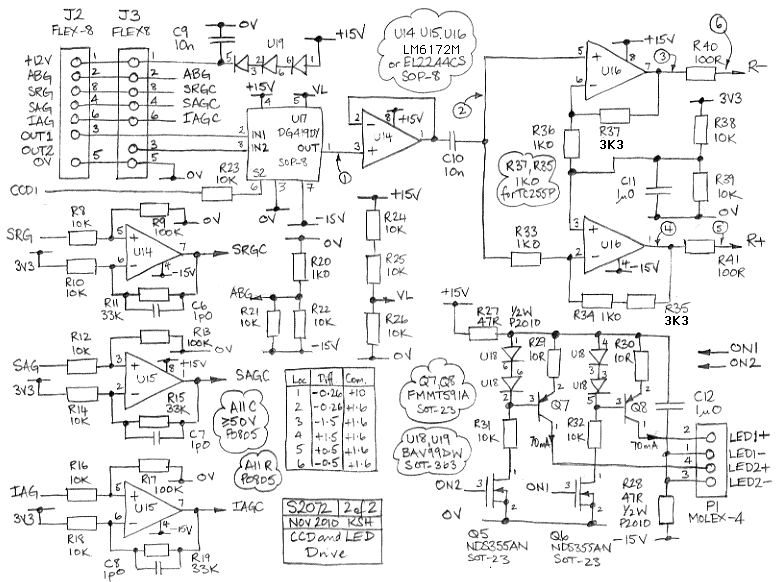 J2 J3
FLEX-8 FLEX8
+12V 1 1
ABG 2 2 ABG
SRG 8 8 SRGC
SAG 4 4 SAGC
IAG 6 6 IAGC
OUT1 3
OUT2 3
0V 5 5 0V
C9
10n
0V
U19
+15V
5 3 2 6 1
+15V
VL
4 5
U17
DG419DY
SOP-8
2 IN1
8 IN2
OUT
S2
1
6 3 7
R23
10K
CCD1
0V
-15V
①
2
3
8
+15V
U14
1
C10
10n
②
U14 U15, U16
LM6172M
or EL2244CS
SOP-8
5
6
U16
+15V
8
7
③
R40
100R
⑥
R-
R37
3K3
R36
1K0
R37, R35
1K0
for TC255P
C11
1µ0
3V3
R38
10K
R39
10K
0V
R33
1K0
3
2
U16
1
4
-15V
④
⑤
R+
R41
100R
R34 1K0
R35
3K3
R8
10K
R9
100K
0V
SRG
3V3
R10
10K
5
6
U14
7
4
-15V
SRGC
R11
33K
C6
1p0
0V
R20
1K0
ABG
R21
10K
R22
10K
+15V
R24
10K
R25
10K
VL
R26
10K
R12
10K
R13
100K
0V
SAG
3V3
R14
10K
3
2
U15
8
+15V
1
SAGC
R15
33K
C7
1p0
All C
≥50V
P0805
All R
P0805
Loc Diff Com.
1 -0.26 +10
2 -0.26 +1.6
3 -1.5 +1.6
4 +1.5 +1.6
5 +0.5 +1.6
6 -0.5 +1.6
R16
10K
R17
100K
0V
IAG
3V3
R18
10K
5
6
U15
7
4
-15V
IAGC
C8
1p0
R19
33K
S2072 2 of 2
NOV 2010 RSH
CCD and LED
Drive
+15V
R27
47R
1/2W
P2010
R29
10R
R30
10R
U18
U18
U18
U18
Q7
Q8
70mA
70mA
Q7, Q8
FMMT591A
SOT-23
U18, U19
BAV99DW
SOT-363
R31
10K
R32
10K
ON2
ON1
0V
Q5
NDS355AN
SOT-23
Q6
NDS355AN
SOT-23
R28
47R
1/2W
P2010
-15V
C12
1µ0
ON1
ON2
2 LED1+
1 LED1-
4 LED2+
3 LED2-
P1
MOLEX-4